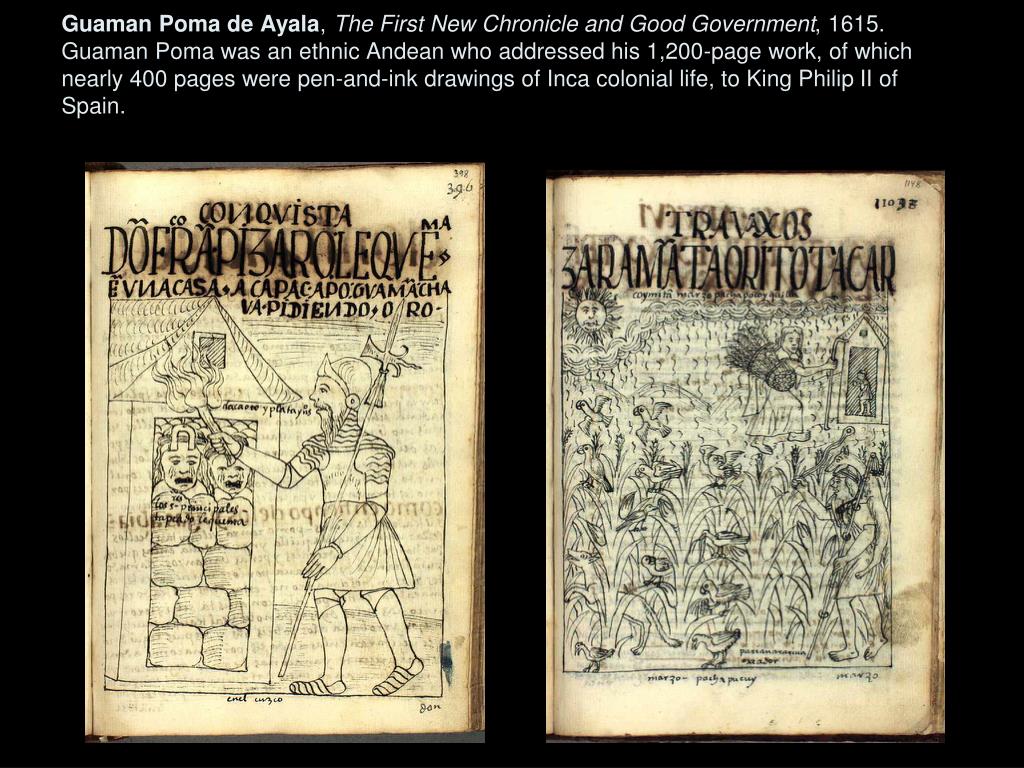 Guaman Poma de Ayala, The First New Chronicle and Good Government, 1615.
Guaman Poma was an ethnic Andean who addressed his 1,200-page work, of which
nearly 400 pages were pen-and-ink drawings of Inca colonial life, to King Philip II of
Spain.
398
396
CONQVISTA
DŌ FRĀ PIZARO LE QVEMA
Ē VNA CASA A CAPAC APO GVAMĀ CHA
VA PIDIENDO ORO-
da ca oro y plata ynos
los principales
tapeado le quema
en el cuzco
don
1148
TRAVAXOS
ZARA MĀTA ORITOTA CAR
marzo pacha pucuy
marzo